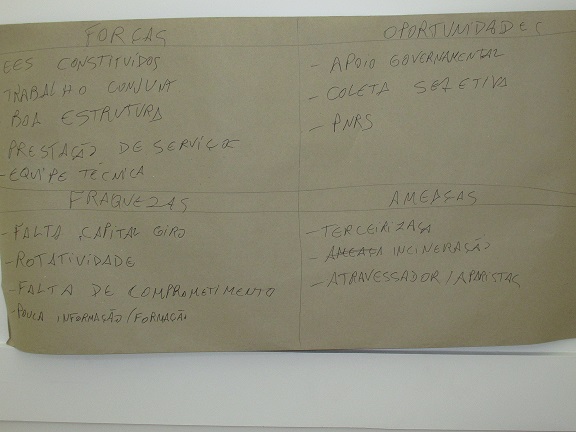 FORÇAS
EES CONSTITUIDOS
TRABALHO CONJUNT
BOA ESTRUTURA
PRESTAÇÃO DE SERVIÇOS
- EQUIPE TÉCNICA
OPORTUNIDADES
- APOIO GOVERNAMENTAL
- COLETA SELETIVA
- PNRS
FRAQUEZAS
- FALTA CAPITAL GIRO
- ROTATIVIDADE
- FALTA DE COMPROMETIMENTO
- POUCA INFORMAÇÃO/FORMAÇÃO
AMEAÇAS
- TERCEIRIZAÇA
- AMEAÇA INCINERAÇÃO
- ATRAVESSADOR/APARISTAS